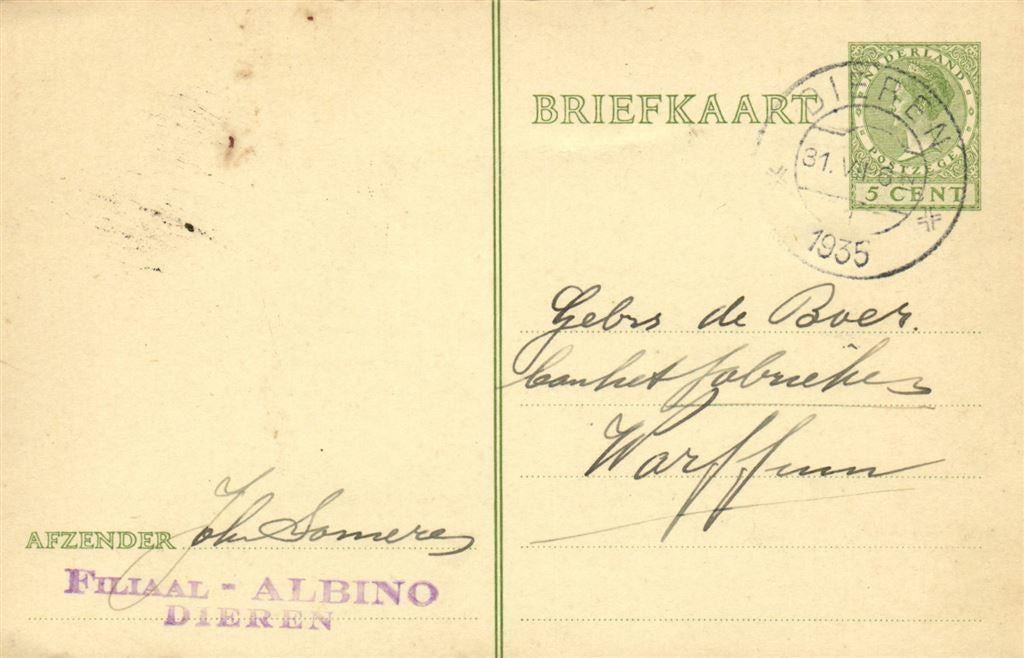 BRIEFKAART
NEDERLAND
POSTZEGEL
5 CENT
DIEREN
31.VII.6N
1935
Gebrs de Boer.
banket fabrieken
Warffum
AFZENDER Joh Someren
FILIAAL - ALBINO
DIEREN